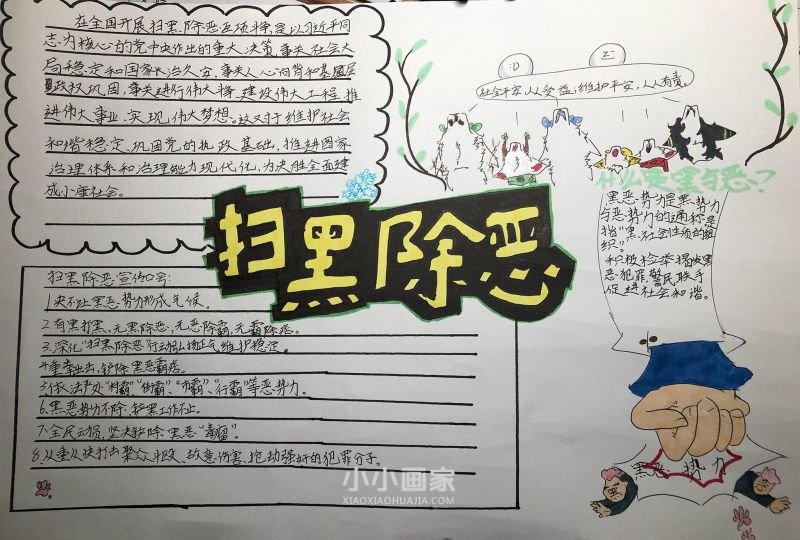 在全国开展扫黑除恶专项斗争,是以习近平同
志为核心的党中央作出的重大决策,事关社会大
局稳定和国家长治久安,事关人心向背和基层
政权巩固,事关进行伟大斗争、建设伟大工程、推
进伟大事业、实现伟大梦想。对于维护社会
和谐稳定、巩固党的执政基础、推进国家
治理体系和治理能力现代化,为决胜全面建
成小康社会。
:D
Z:
社会平安,人人受益;维护平安,人人有责。
什么是黑与恶?
黑恶势力是黑势力
与恶势力的通称是
指“黑社会性质的组
织”。
积极检举揭发黑
恶犯罪警民联手
促进社会和谐。
扫黑除恶
扫黑除恶宣传口号:
1.决不让黑恶势力形成气候。
2.有黑打黑、无黑除恶、无恶除霸、无霸除痞。
3.深化“扫黑除恶”行动弘扬正气维护稳定。
4.重拳出击,铲除黑恶霸痞。
5.依法严处“村霸”、“街霸”、“市霸”、“行霸”等恶势力。
6.黑恶势力不除,铲黑工作不止。
7.全民动员,坚决铲除黑恶“毒瘤”。
8.从重从快打击聚众斗殴、故意伤害、抢劫强奸的犯罪分子。
黑恶势力
小小画家
XIAOXIAOHUAJIA.COM